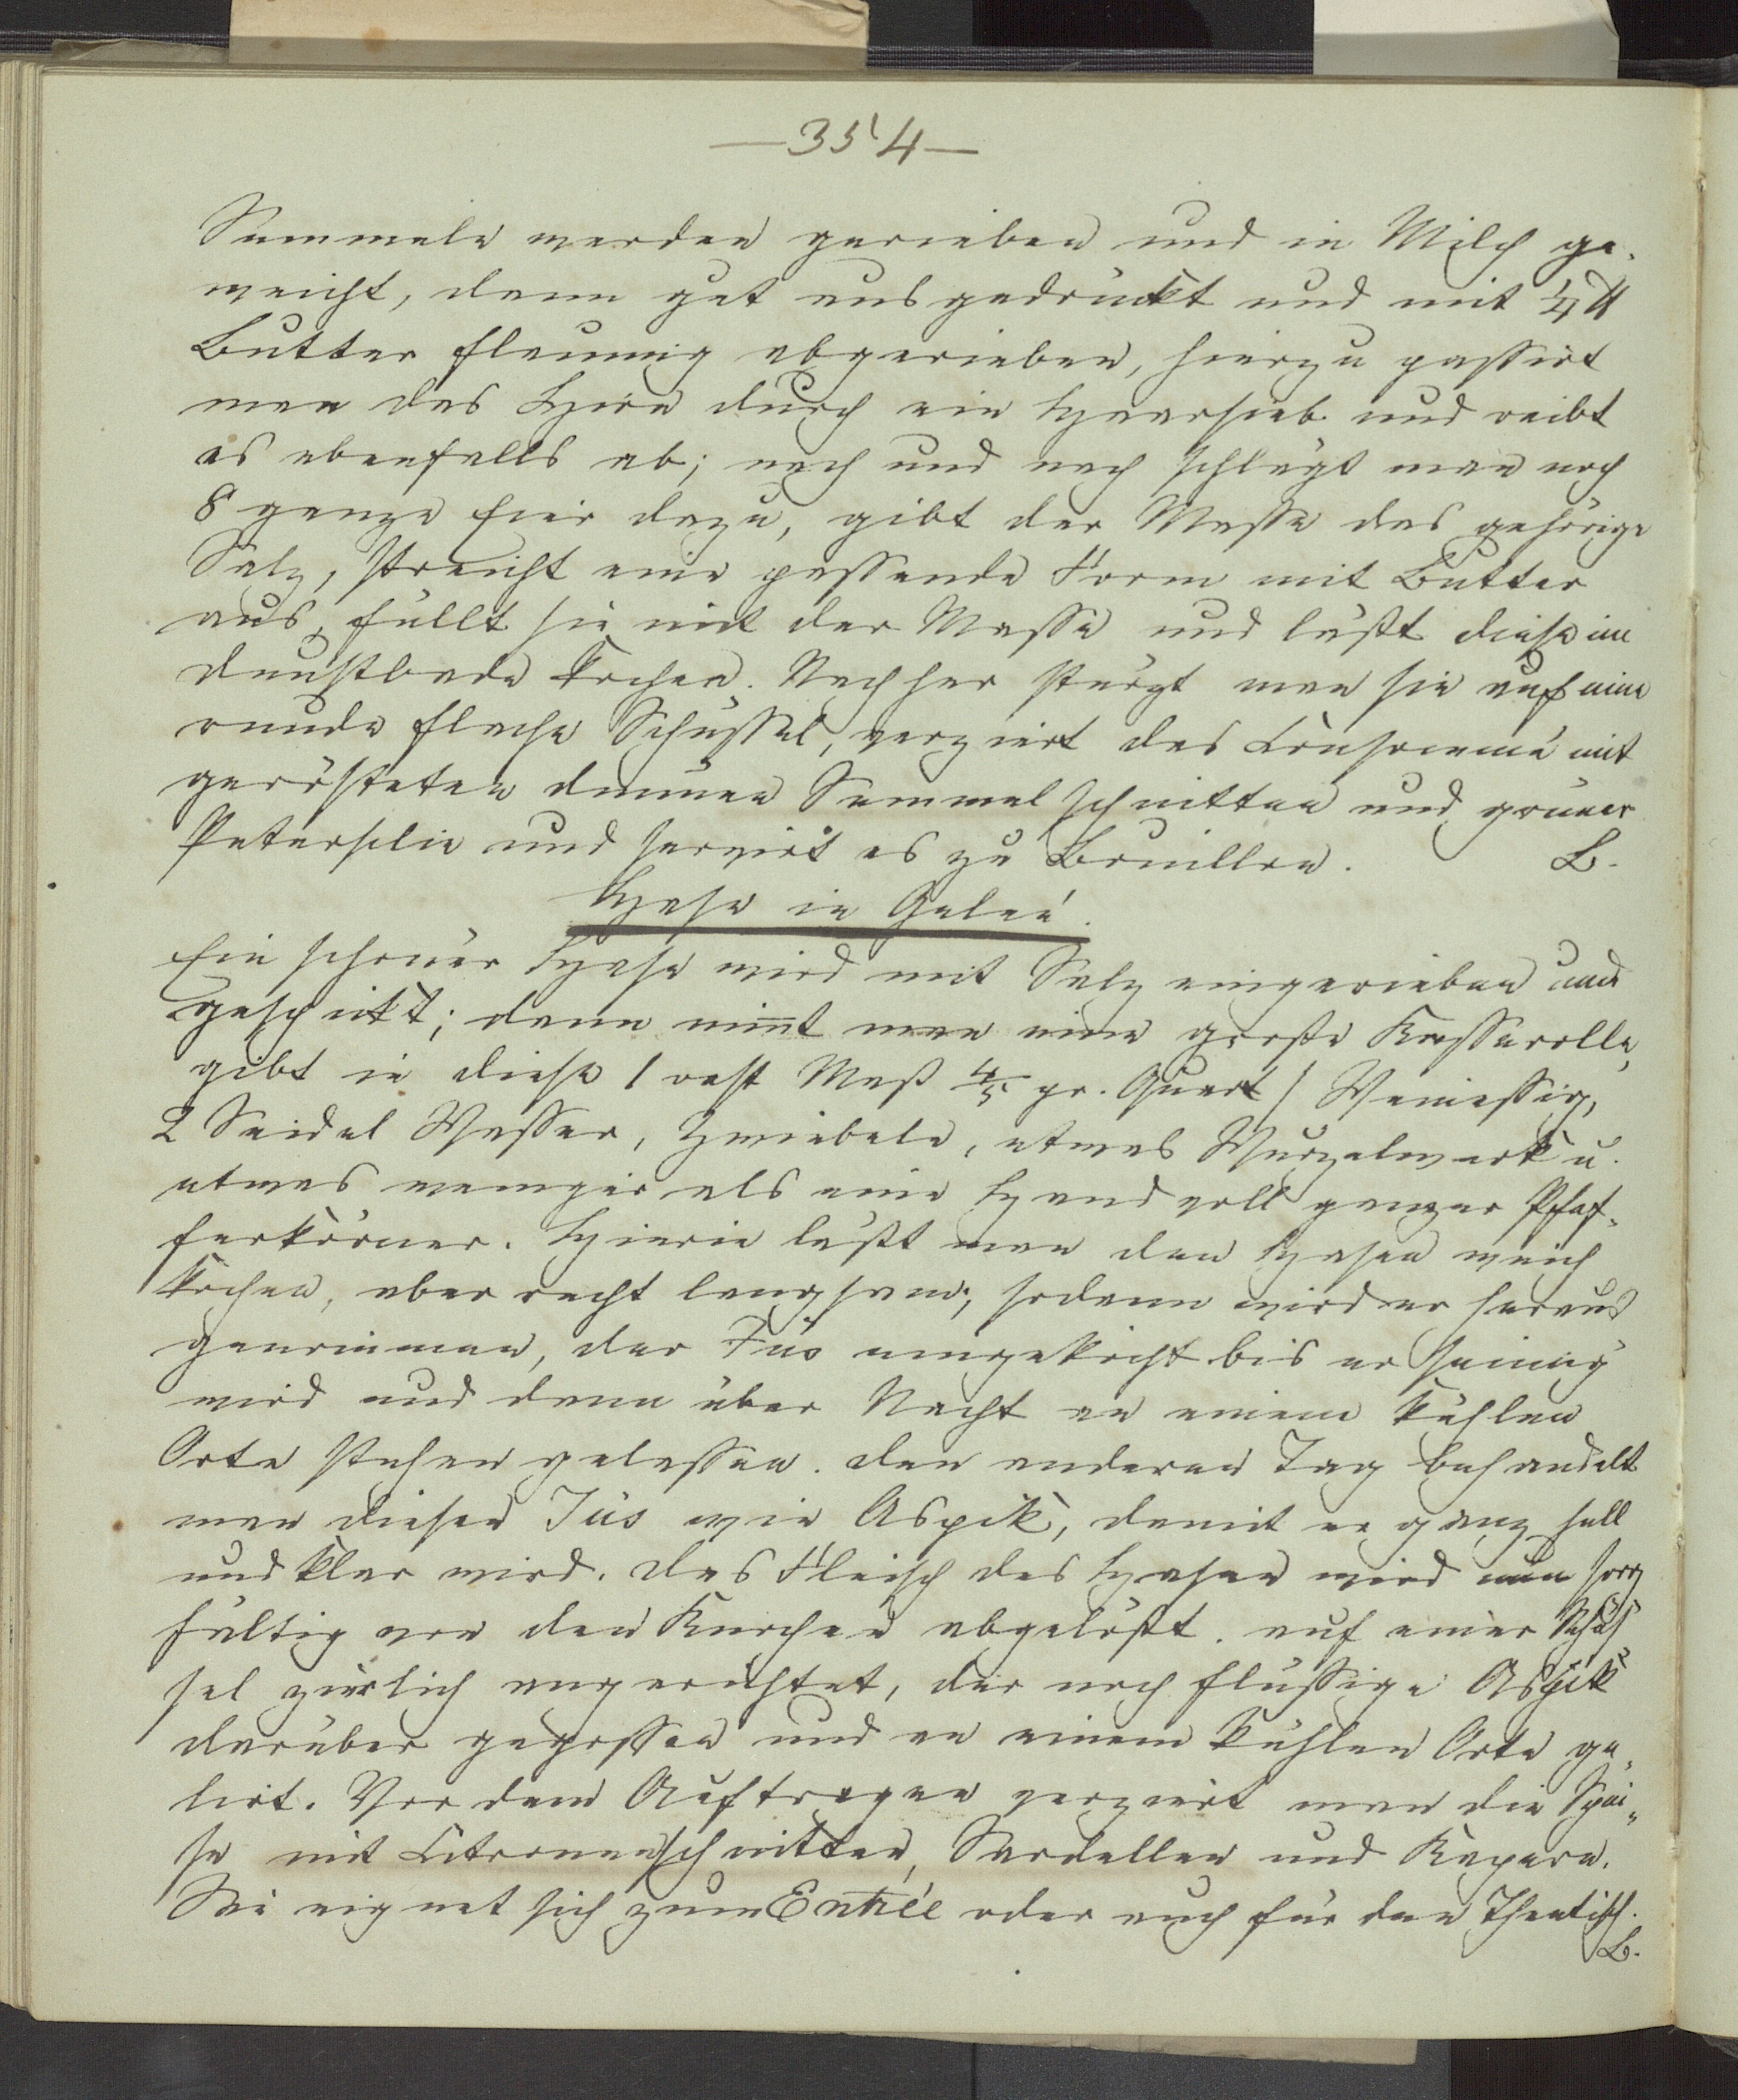 —354—
Semmeln werden gerieben und in Milch ge-
weicht, dann gut ausgedrückt und mit ¼ ℔
Butter flaumig abgerieben, hierzu passirt
man das Hirn durch ein Haarsieb und reibt
es ebenfalls ab; nach und nach schlägt man noch
8 ganze Eier dazu, gibt der Masse das gehörige
Salz, streicht eine passende Form mit Butter
aus, füllt sie mit der Masse und läßt diese im
Dunstbade kochen. Nachher stürzt man sie auf eine
runde flache Schüssel, verziert das Consommé mit
gerösteten dünnen Semmelschnitten und grüner
Petersilie und servirt es zu Bouillon. B.
Hase in Geleé.
Ein schöner Hase wird mit Salz eingerieben und
gespickt; dann nim̄t man eine große Kasserolle,
gibt in diese 1 östr Maß ⅘ pr. Quart/ Weinessig,
2 Seidel Wasser, Zwiebeln, etwas Wurzelwerk u.
etwas weniger als eine Hand voll ganzer Pfef-
ferkörner. Hierin läßt man den Hasen weich
kochen, aber recht langsam; sodann wird er heraus
genommen, der Jüs eingekocht bis er saimig
wird und dann über Nacht an einem kühlen
Orte stehen gelassen. Den anderen Tag behandelt
man diesen Jüs wie Aspik, damit er ganz hell
und klar wird. Das Fleisch des Hasen wird nun sorg
fältig von den Knochen abgelößt, auf einer Schüs
sel zierlich angerichtet, der noch flüssige Aspik
darüber gegossen und an einem kühlen Orte ge-
lirt. Vor dem Auftragen verziert man die Spei-
se mit Citronenschnitten, Sardellen und Kapern.
Sie eignet sich zum Entrée oder auch für den Theetisch.
B.